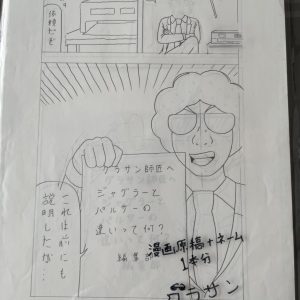 依頼だぞ
グラサン師匠へ
ジャグラーと
バルサーの
違いって何？
編集部
これは前にも
説明したな…
漫画原稿+ネーム
1本分
グラサン